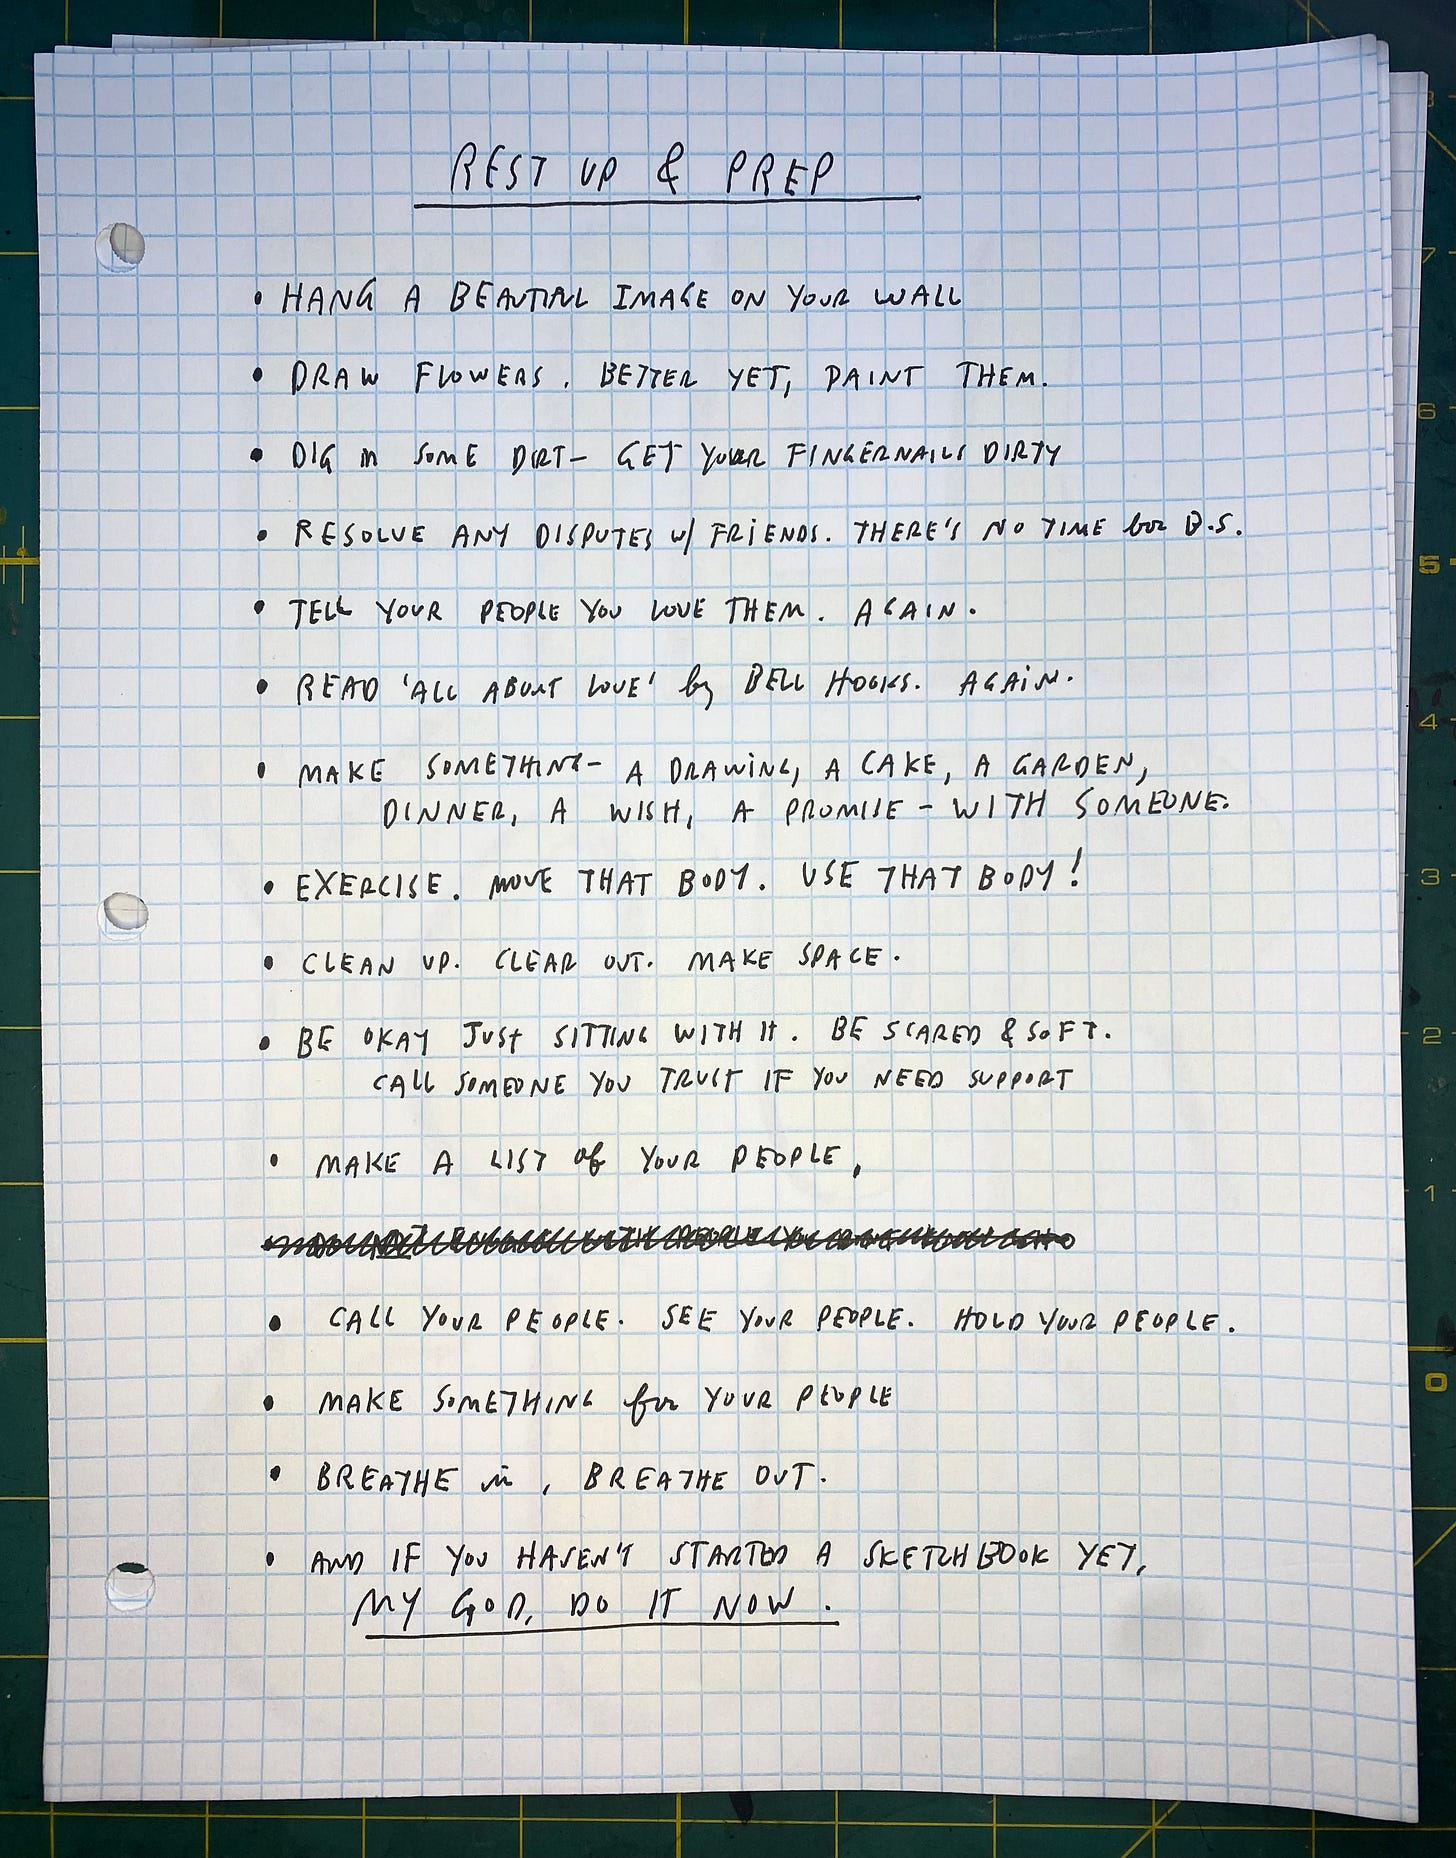 REST UP & PREP
• HANG A BEAUTIFUL IMAGE ON YOUR WALL
• DRAW FLOWERS. BETTER YET, PAINT THEM.
• DIG in SOME DIRT– GET YOUR FINGERNAILS DIRTY
• RESOLVE ANY DISPUTES w/ FRIENDS. THERE'S NO TIME for B.S.
• TELL YOUR PEOPLE YOU LOVE THEM. AGAIN.
• READ 'ALL ABOUT LOVE' by BELL HOOKS. AGAIN.
• MAKE SOMETHING– A DRAWING, A CAKE, A GARDEN,
DINNER, A WISH, A PROMISE – WITH SOMEONE.
• EXERCISE. MOVE THAT BODY. USE THAT BODY!
• CLEAN UP. CLEAR OUT. MAKE SPACE.
• BE OKAY JUST SITTING WITH It. BE SCARED & SOFT.
CALL SOMEONE YOU TRUST IF YOU NEED SUPPORT
• MAKE A LIST of YOUR PEOPLE,
• CALL YOUR PEOPLE. SEE YOUR PEOPLE. HOLD YOUR PEOPLE.
• MAKE SOMETHING for YOUR PEOPLE
• BREATHE in, BREATHE OUT.
• AND IF YOU HAVEN'T STARTED A SKETCHBOOK YET,
MY GOD, DO IT NOW.
8
7
6
5
4
3
2
1
0